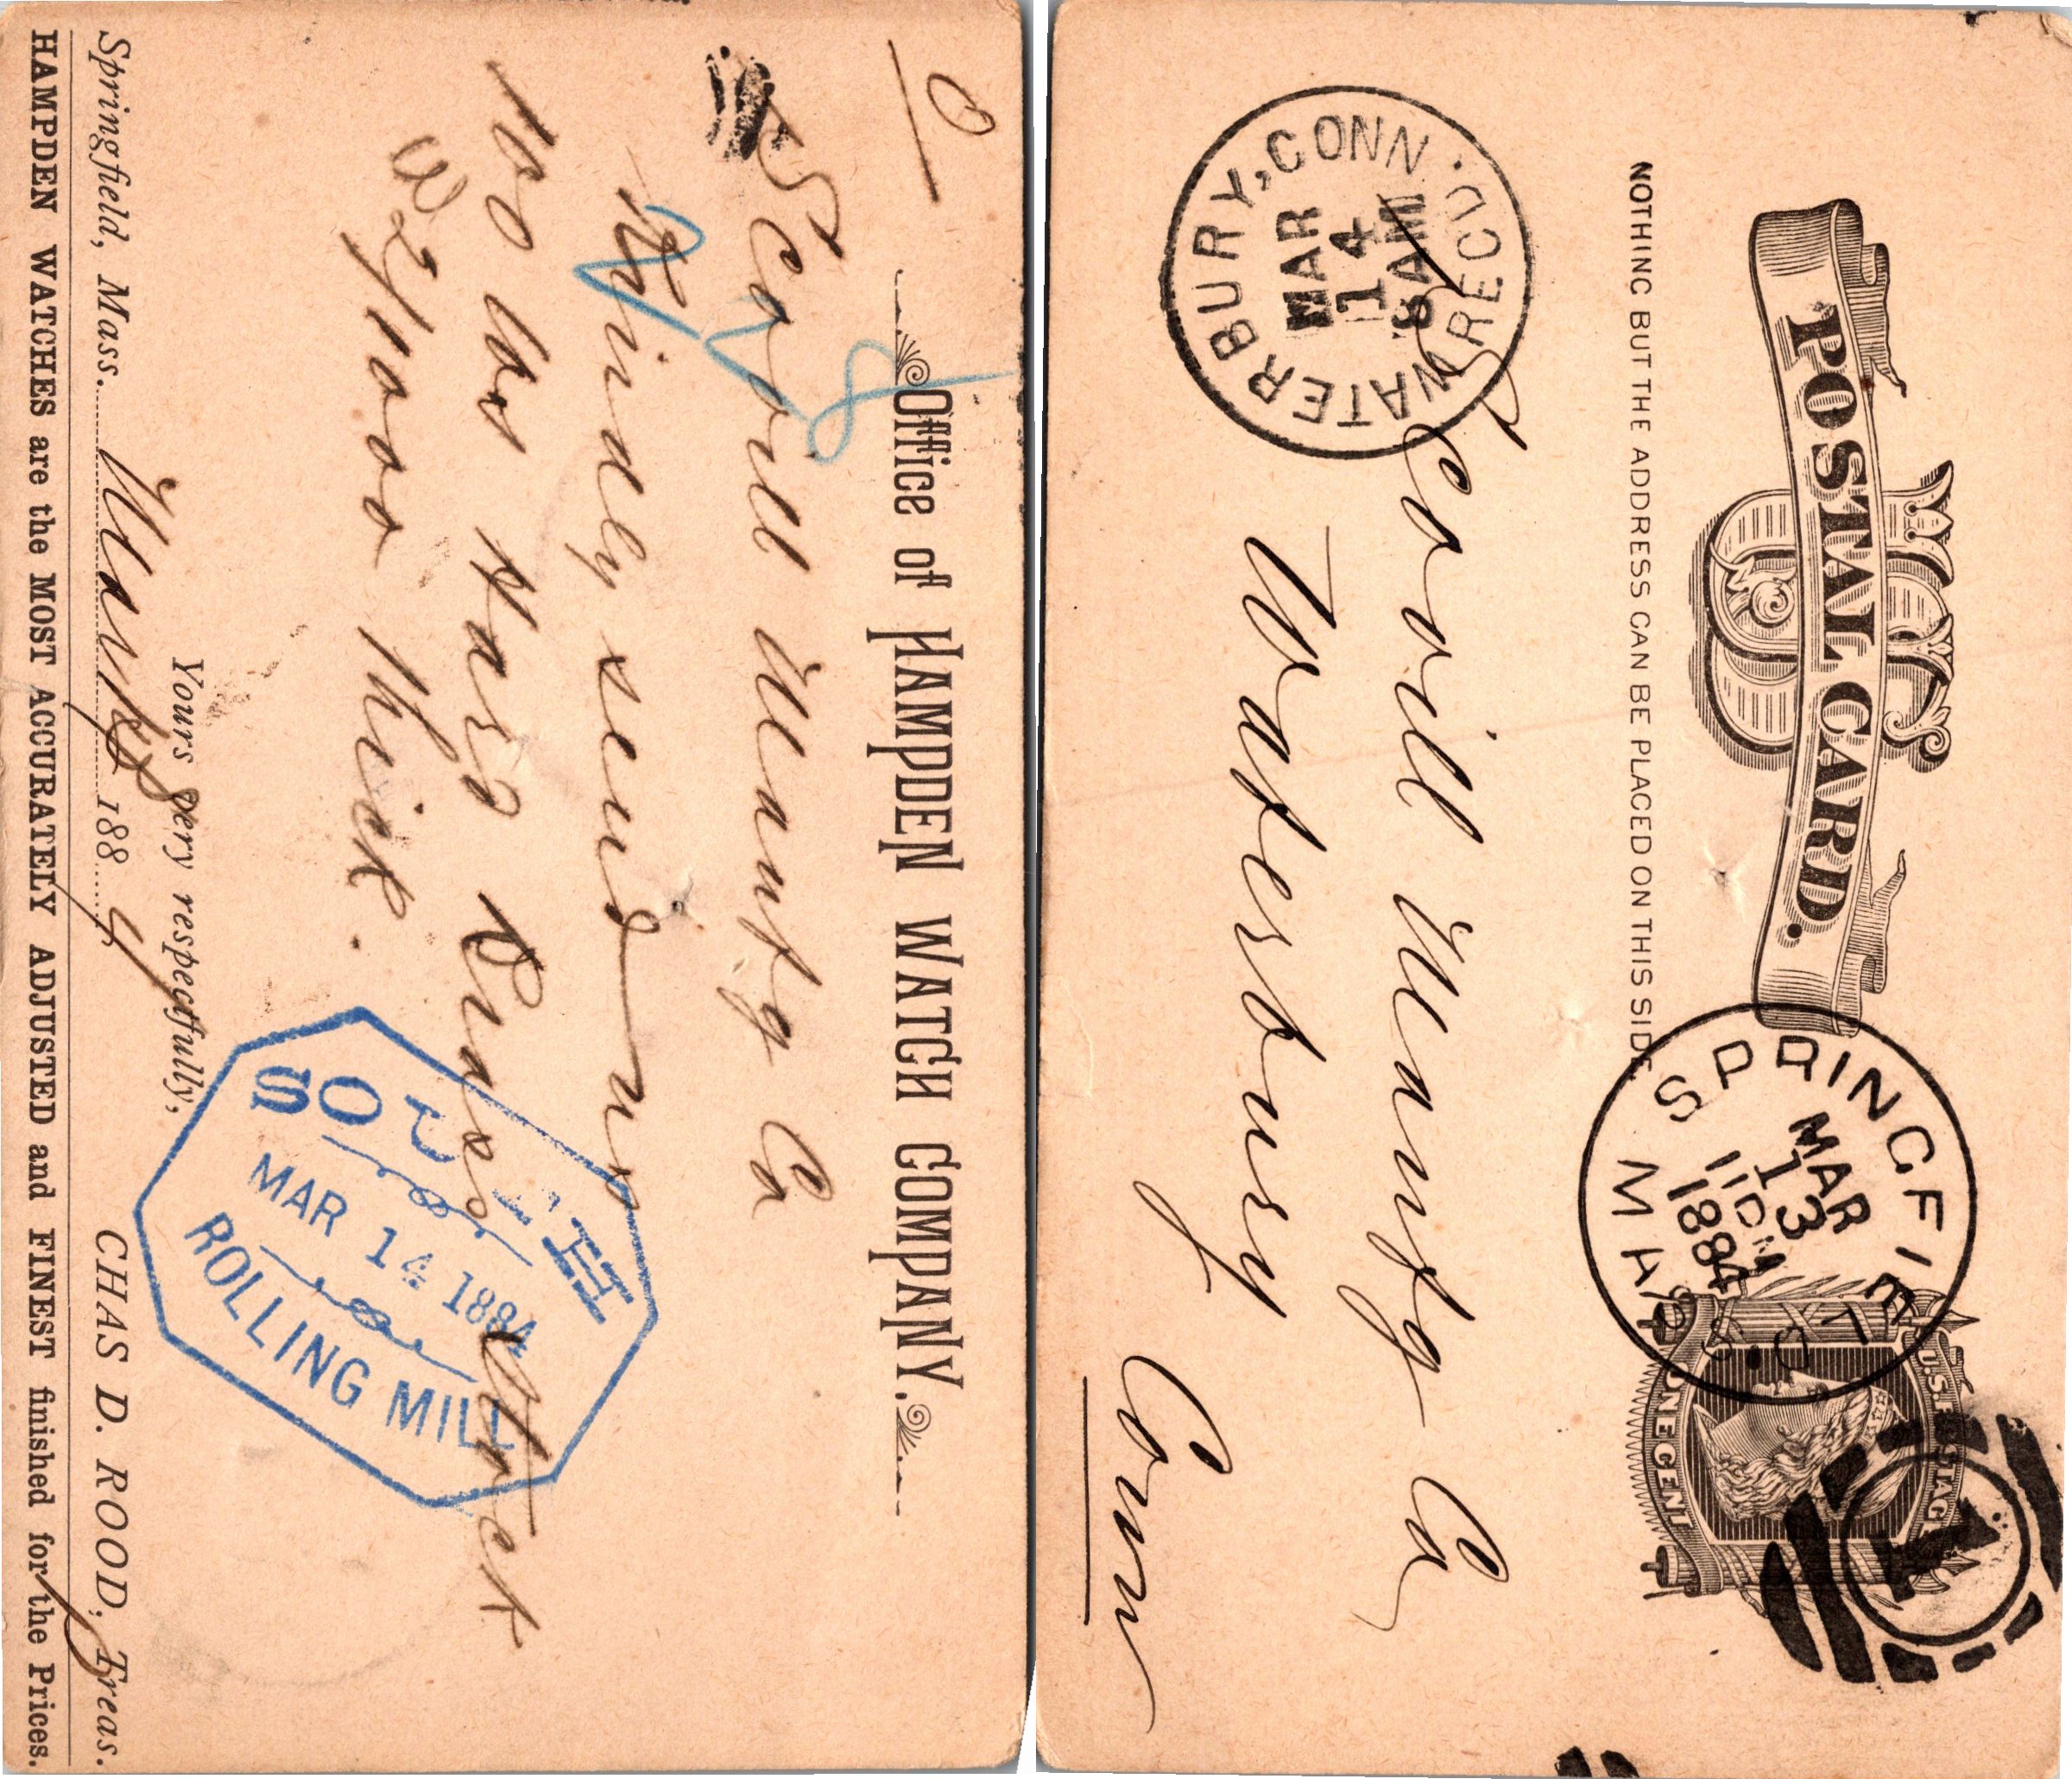 POSTAL CARD.
U.S. POSTAGE
ONE CENT
NOTHING BUT THE ADDRESS CAN BE PLACED ON THIS SIDE
SPRINGFIELD
MAR
13
1884
MASS.
1
WATERBURY, CONN.
MAR
14
8AM
RECD.
Scovill Manfg Co
Waterbury
Conn
Office of HAMPDEN WATCH COMPANY.
Scovill Manfg Co
Kindly send us
100 lbs Hard Brass Stock
W 2/1000 thick.
SOUTH
MAR 14 1884
ROLLING MILL
Yours very respectfully,
Springfield, Mass. March 188 4 CHAS D. ROOD, Treas.
HAMPDEN WATCHES are the MOST ACCURATELY ADJUSTED and FINEST finished for the Prices.